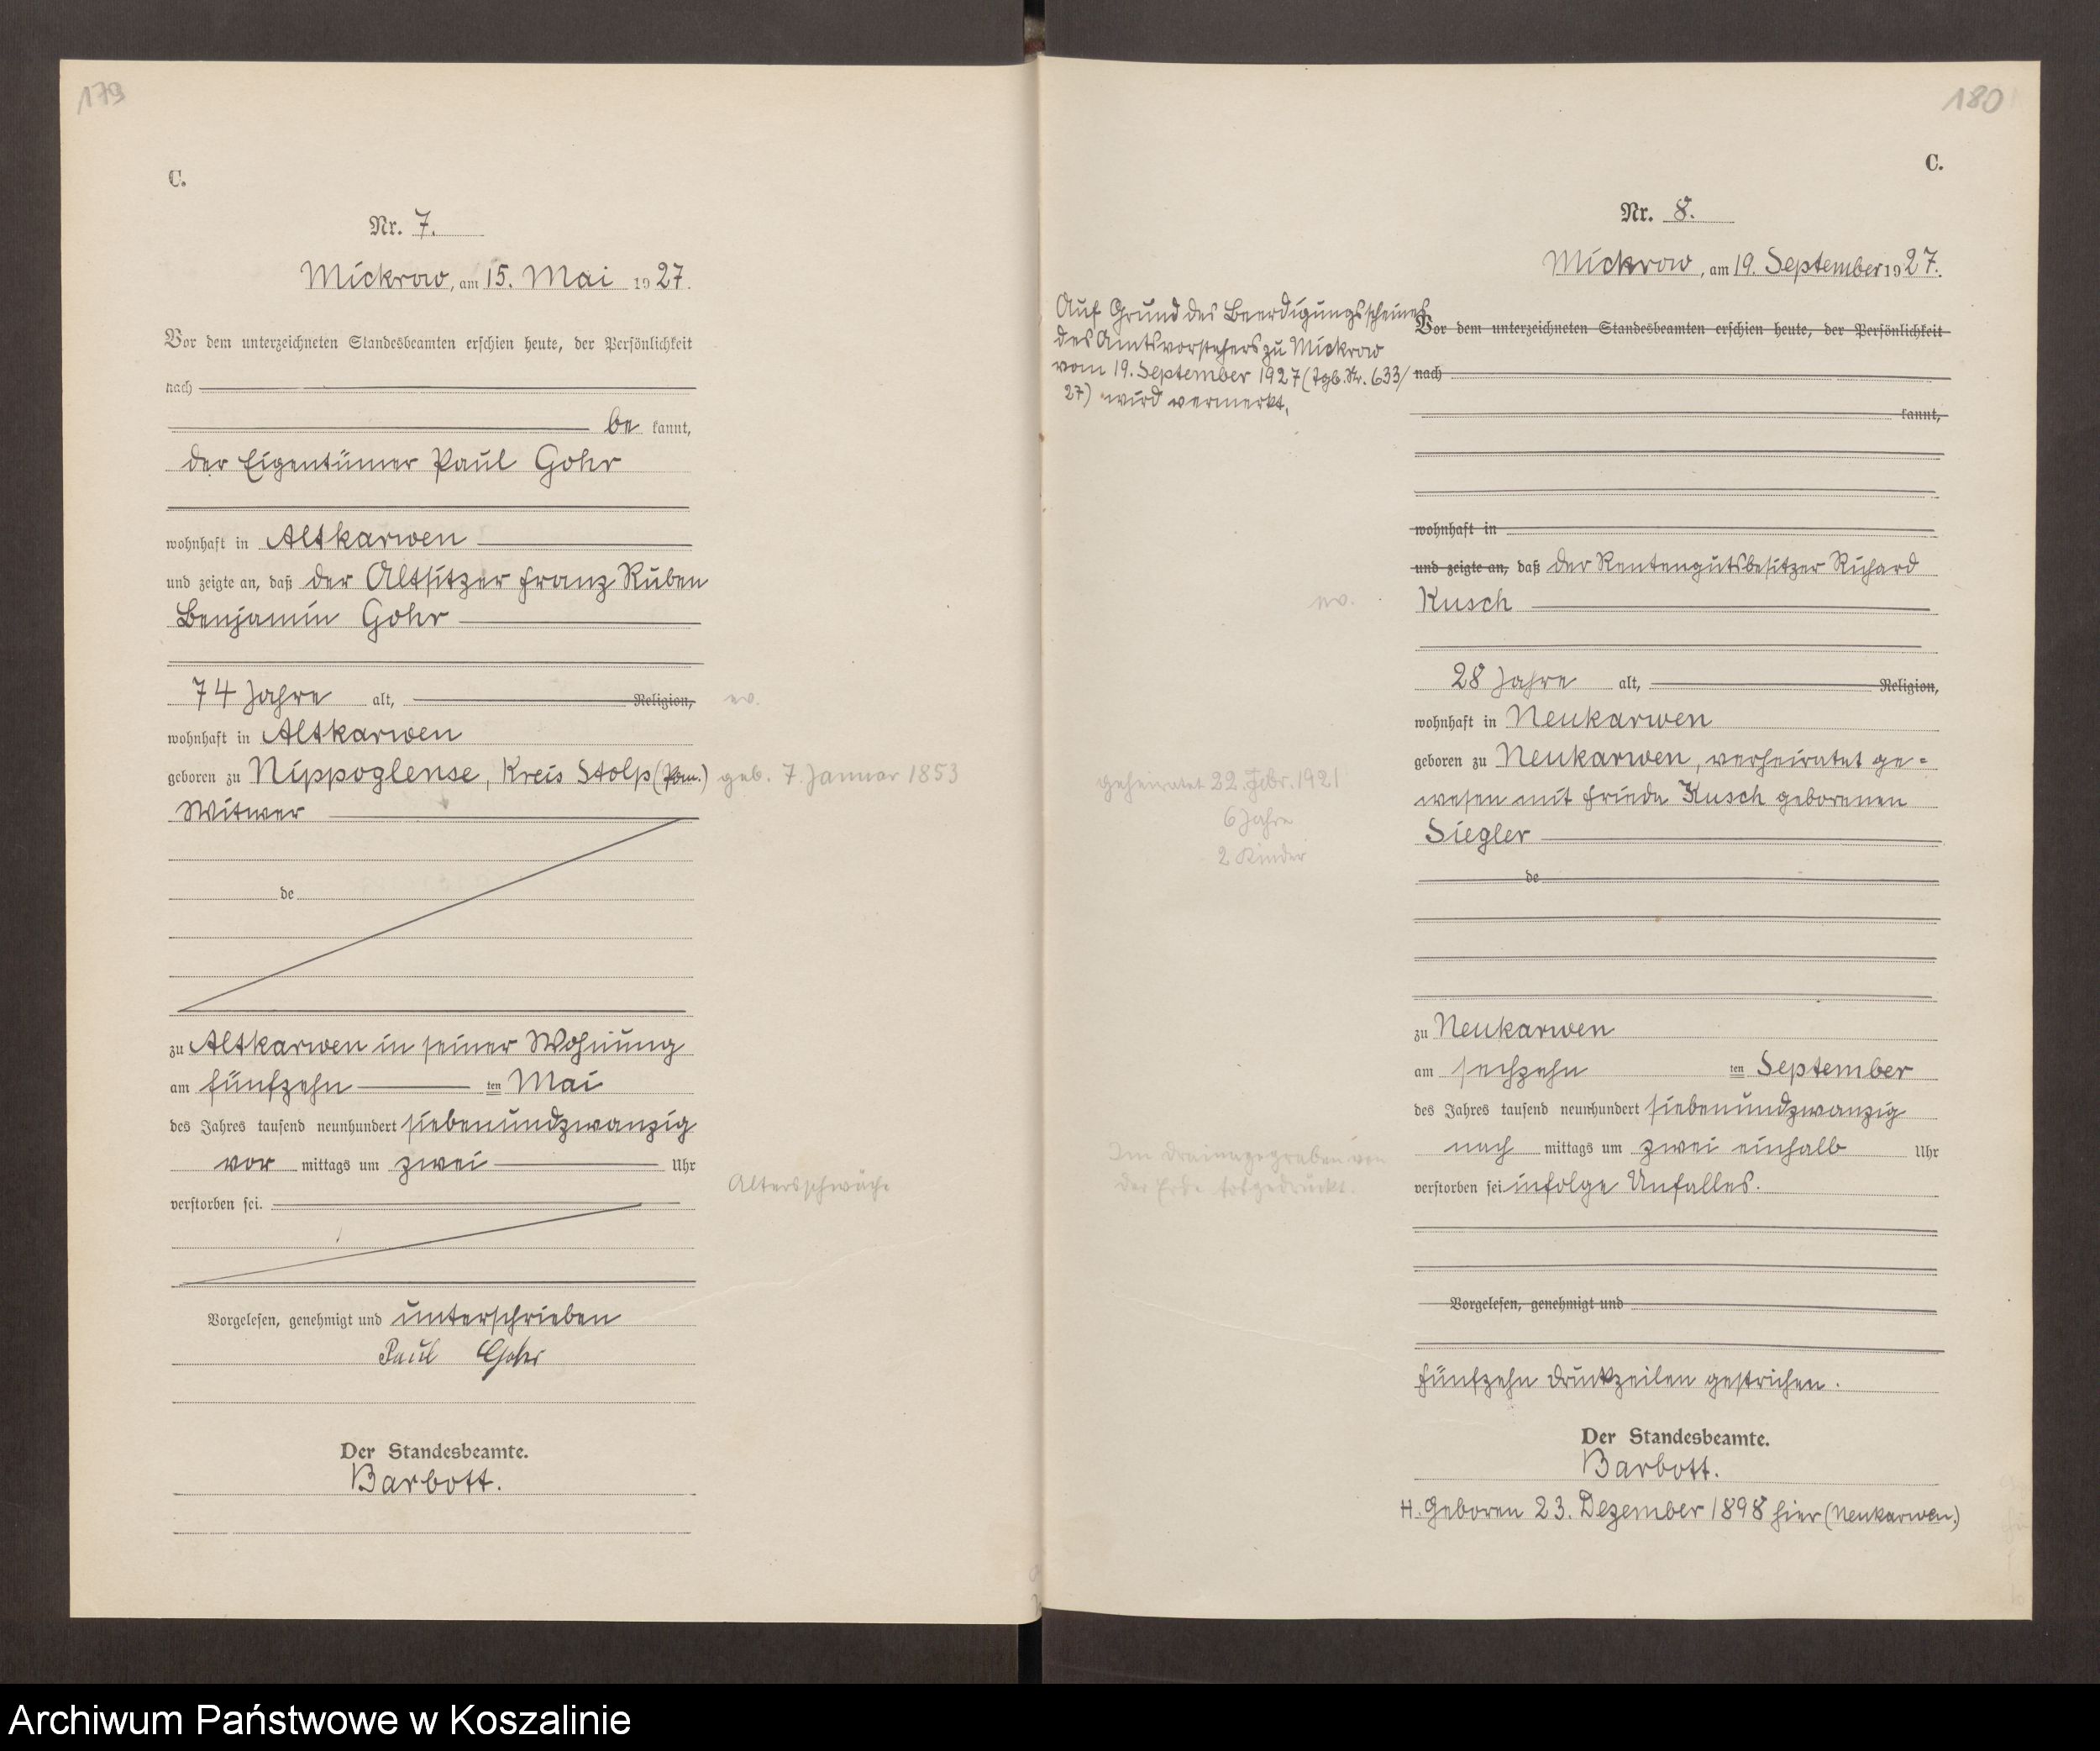 179
C.
Nr. 7.
Mickrow, am 15. Mai 1927.
Vor dem unterzeichneten Standesbeamten erschien heute, der Persönlichkeit
nach
be kannt,
der Eigentümer Paul Gohr
wohnhaft in Altkarwen
und zeigte an, daß der Altsitzer Franz Ruben
Benjamin Gohr
74 Jahre alt, Religion, ev.
wohnhaft in Altkarwen
geboren zu Nippoglense, Kreis Stolp (Pom.) geb. 7. Januar 1853
Witwer
de
zu Altkarwen in seiner Wohnung
am fünfzehn ten Mai
des Jahres tausend neunhundert siebenundzwanzig
vor mittags um zwei Uhr
Altersschwäche
verstorben sei.
Vorgelesen, genehmigt und unterschrieben
Paul Gohr
Der Standesbeamte.
Barbott.
180
C.
Nr. 8.
Mickrow, am 19. September 1927.
Auf Grund des Beerdigungsscheines
des Amtsvorstehers zu Mickrow
vom 19. September 1927 (Tgb. Nr. 633/
27) wird vermerkt,
Vor dem unterzeichneten Standesbeamten erschien heute, der Persönlichkeit
nach
kannt,
wohnhaft in
und zeigte an, daß der Rentengutsbesitzer Richard
ev.
Kusch
28 Jahre alt, Religion,
wohnhaft in Neukarwen
geboren zu Neukarwen, verheiratet ge-
geheiratet 22. Febr. 1921
wesen mit Frieda Kusch geborenen
6 Jahre
Siegler
2 Kinder
de
zu Neukarwen
am sechzehn ten September
des Jahres tausend neunhundert siebenundzwanzig
nach mittags um zwei einhalb Uhr
Im Drainagegraben von
der Erde totgedrückt.
verstorben sei infolge Unfalles.
Vorgelesen, genehmigt und
Fünfzehn Druckzeilen gestrichen.
Der Standesbeamte.
Barbott.
H. Geboren 23. Dezember 1898 hier (Neukarwen.)
Archiwum Państwowe w Koszalinie